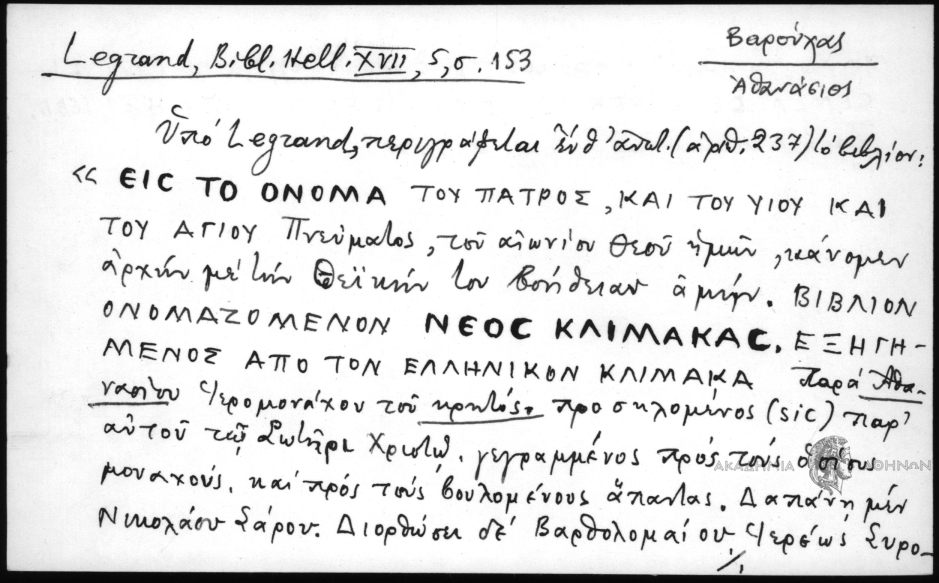 Βαρούχας
Legrand, Bibl. Hell. XVII, 5, σ. 153
Ἀθανάσιος
Ὑπό Legrand, περιγράφεται ἐν (ἀριθ. 237) τό βιβλίον:
« ΕΙC ΤΟ ΟΝΟΜΑ ΤΟΥ ΠΑΤΡΟΣ, ΚΑΙ ΤΟΥ ΥΙΟΥ ΚΑΙ
ΤΟΥ ΑΓΙΟΥ Πνεύματος, τοῦ αἰωνίου θεοῦ ἡμῶν, κάνομεν
ἀρχήν μέ τήν θεϊκήν του βοήθειαν ἀμήν. ΒΙΒΛΙΟΝ
ΟΝΟΜΑΖΟΜΕΝΟΝ ΝΕΟC ΚΛΙΜΑΚΑC. ΕΞΗΓΗ-
ΜΕΝΟΣ ΑΠΟ ΤΟΝ ΕΛΛΗΝΙΚΟΝ ΚΛΙΜΑΚΑ παρά Ἀθα-
νασίου Ἱερομονάχου τοῦ κρητός. προσηλομένος (sic) παρ'
αὐτοῦ τῷ Σωτῆρι Χριστῷ. γεγραμμένος πρός τούς ὁσίους
ΑΚΑΔΗΜΙΑ ΑΘΗΝΩΝ
μοναχούς. καί πρός τούς βουλομένους ἅπαντας. Δαπάνῃ μέν
Νικολάου Σάρου. Διορθώσει δέ Βαρθολομαίου Ἱερέως Συρο-
./.